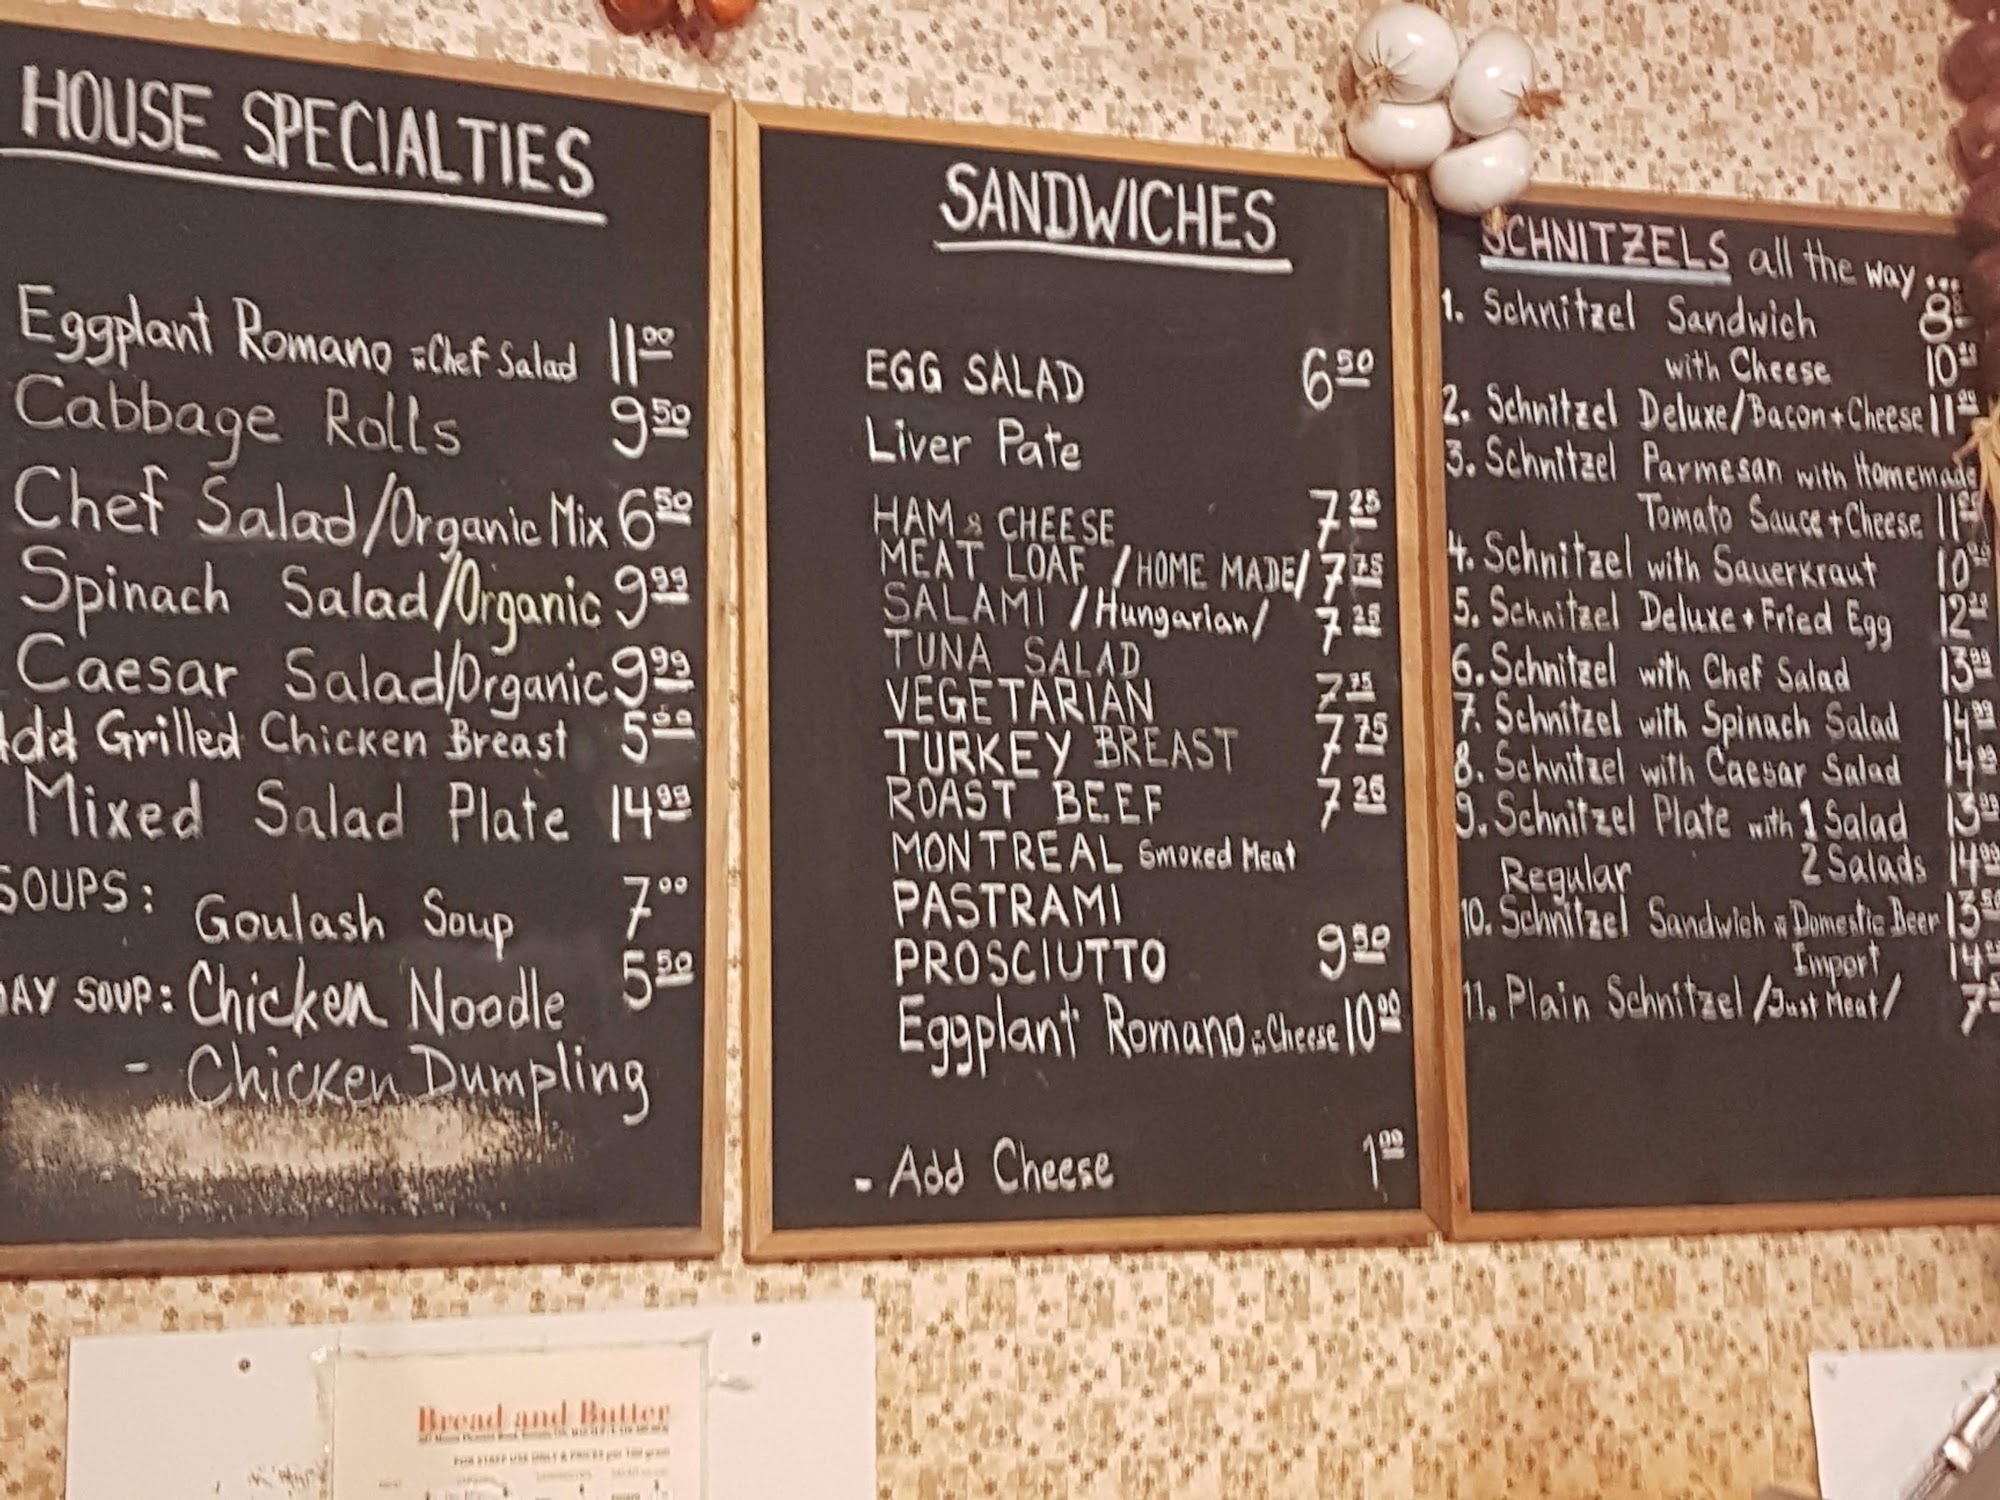 HOUSE SPECIALTIES
Eggplant Romano w Chef Salad 11 00
Cabbage Rolls 9 50
Chef Salad/Organic Mix 6 50
Spinach Salad/Organic 9 99
Caesar Salad/Organic 9 99
Add Grilled Chicken Breast 5 00
Mixed Salad Plate 14 99
SOUPS:
Goulash Soup 7 00
DAY SOUP: Chicken Noodle 5 50
- Chicken Dumpling
SANDWICHES
EGG SALAD 6 50
Liver Pate
HAM & CHEESE 7 25
MEAT LOAF /HOME MADE/ 7 75
SALAMI /Hungarian/ 7 25
TUNA SALAD
VEGETARIAN 7 75
TURKEY BREAST 7 75
ROAST BEEF 7 25
MONTREAL Smoked Meat
PASTRAMI
PROSCIUTTO 9 50
Eggplant Romano w Cheese 10 00
- Add Cheese 1 00
SCHNITZELS all the way...
1. Schnitzel Sandwich 8
with Cheese 10
2. Schnitzel Deluxe/Bacon+Cheese 11
3. Schnitzel Parmesan with Homemade
Tomato Sauce+Cheese 11
4. Schnitzel with Sauerkraut 10
5. Schnitzel Deluxe+Fried Egg 12
6. Schnitzel with Chef Salad 13 99
7. Schnitzel with Spinach Salad 14 99
8. Schnitzel with Caesar Salad 14 99
9. Schnitzel Plate with 1 Salad 13 99
Regular 2 Salads 14 99
10. Schnitzel Sandwich w Domestic Beer 13 50
Import 14
11. Plain Schnitzel /Just Meat/ 7
Bread and Butter